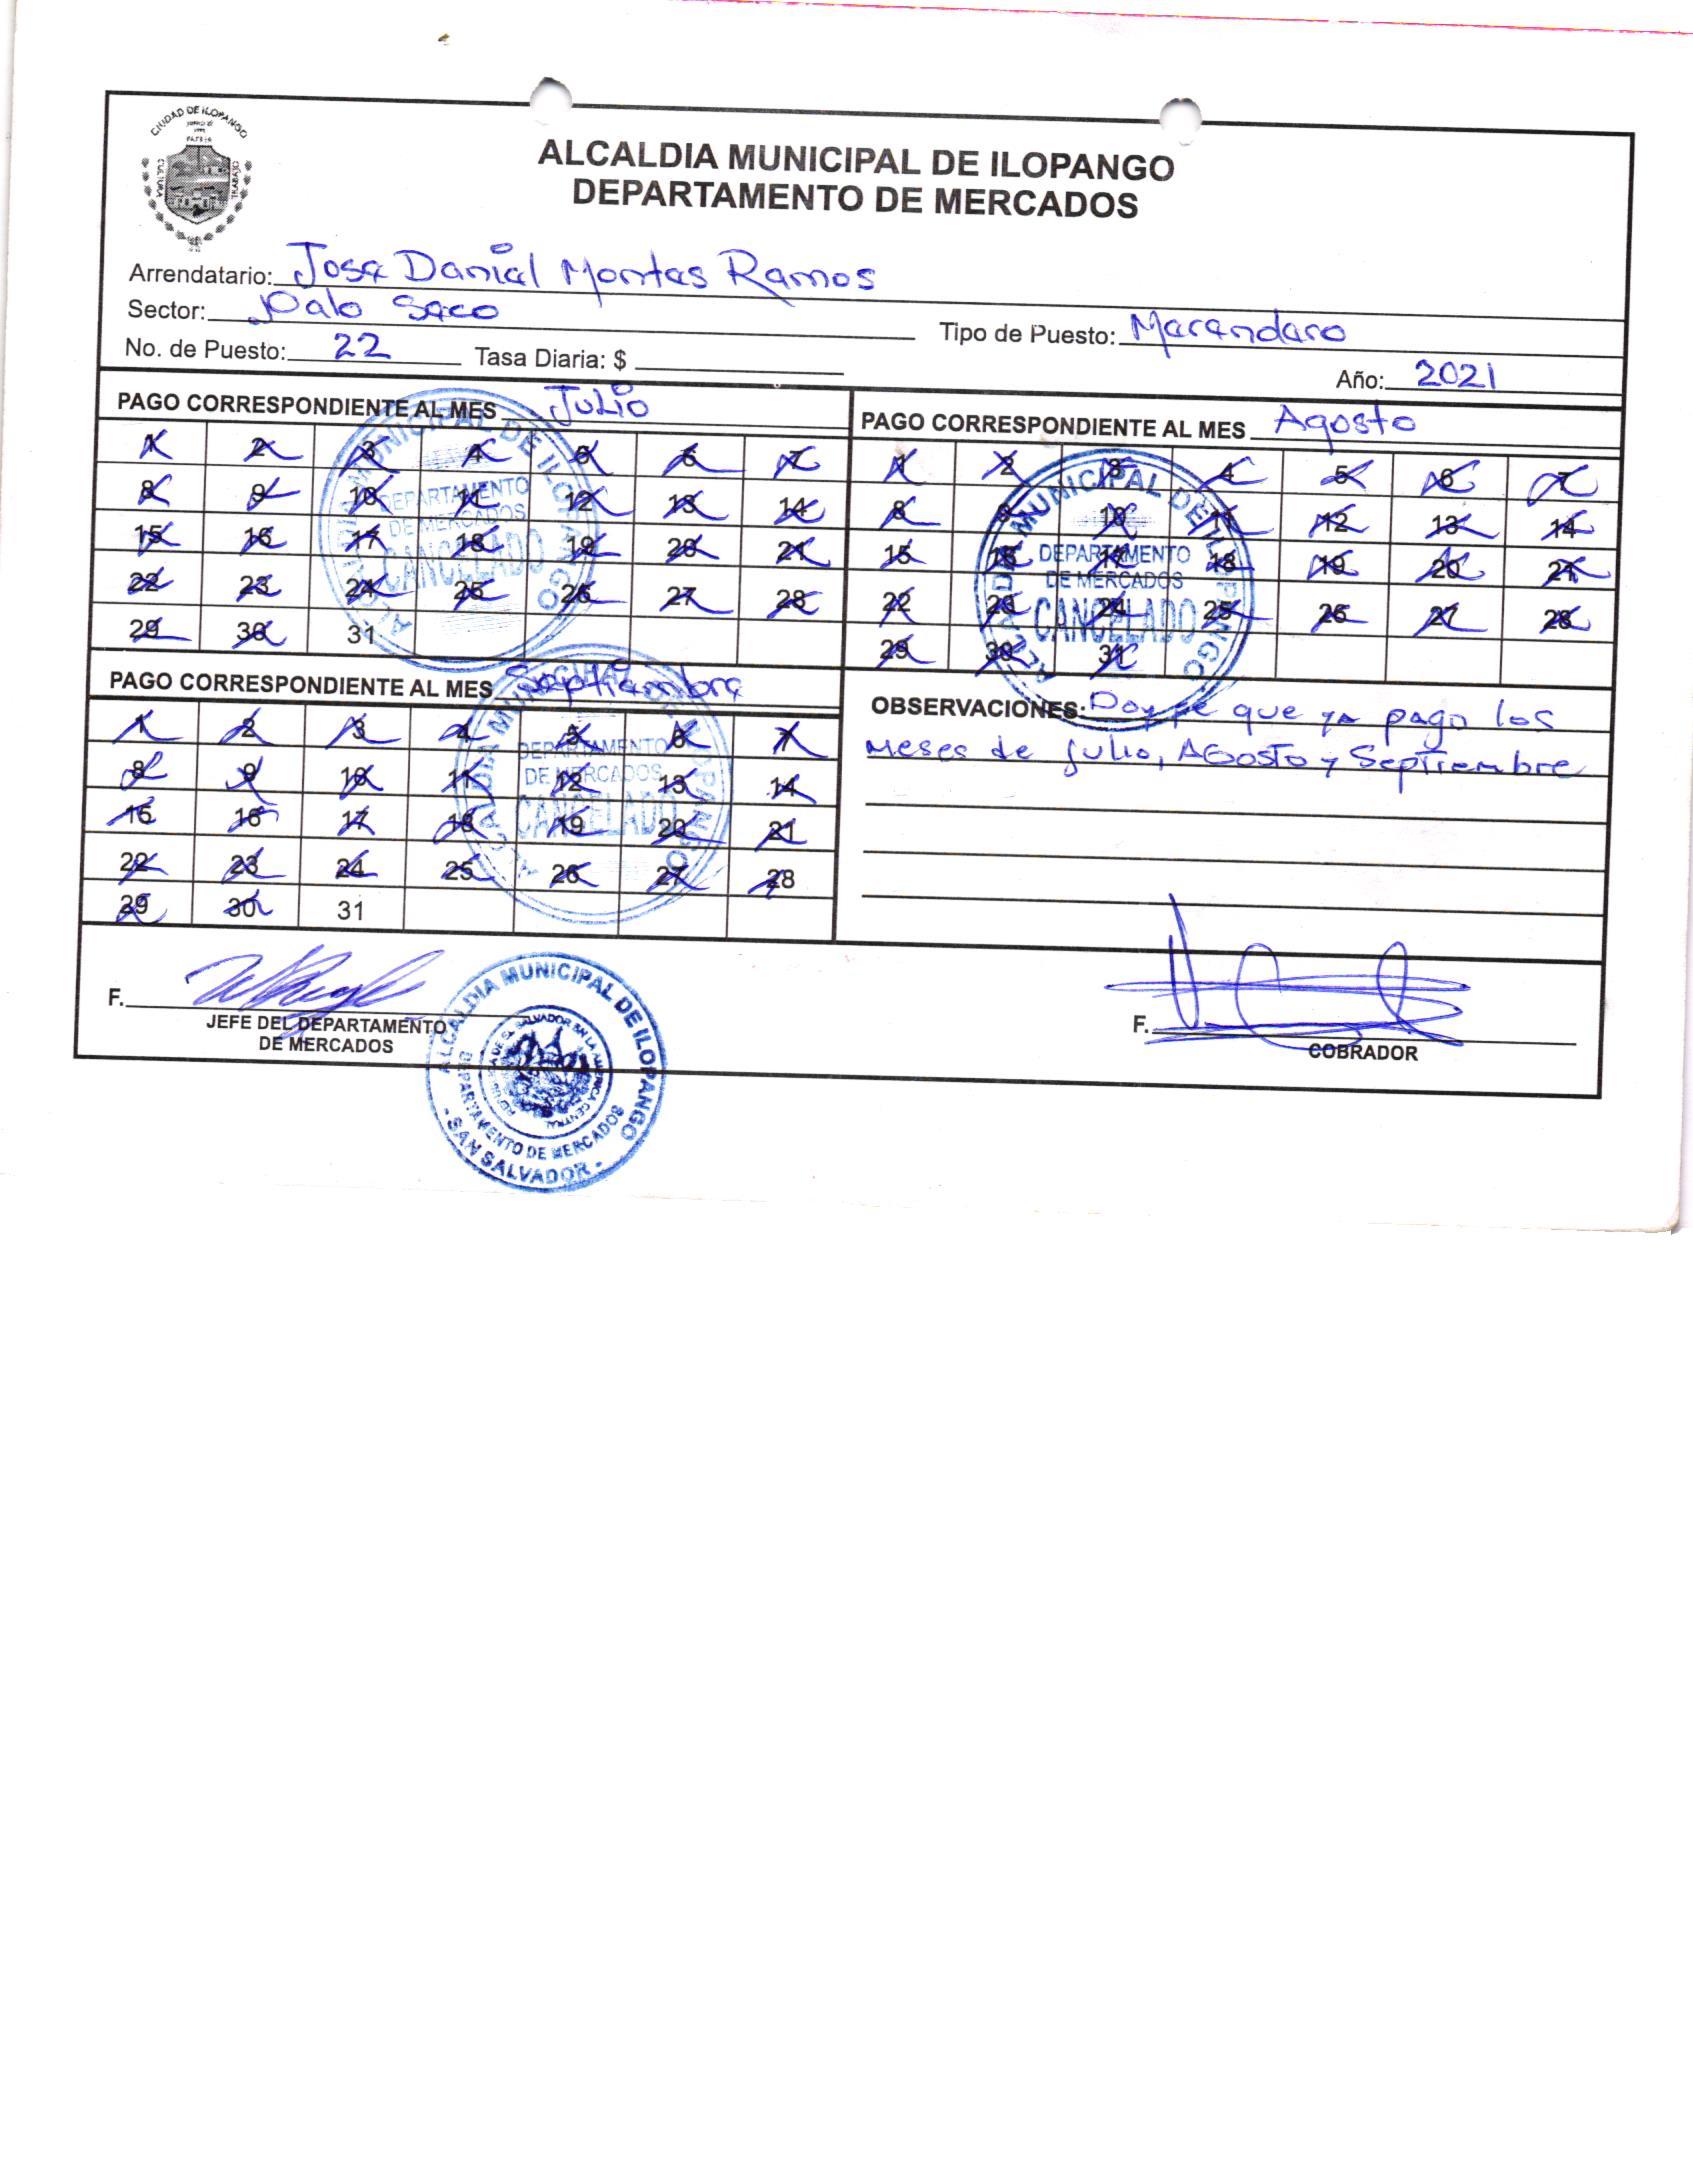 CIUDAD DE ILOPANGO
CULTURA
TRABAJO
ALCALDIA MUNICIPAL DE ILOPANGO
DEPARTAMENTO DE MERCADOS
Arrendatario: Jose Daniel Montes Ramos
Sector: Palo Seco Tipo de Puesto: Merendero
No. de Puesto: 22 Tasa Diaria: $ Año: 2021
PAGO CORRESPONDIENTE AL MES Julio
1 2 3 4 5 6 7
8 9 10 11 12 13 14
15 16 17 18 19 20 21
22 23 24 25 26 27 28
29 30 31
ALCALDIA MUNICIPAL DE ILOPANGO
DEPARTAMENTO
DE MERCADOS
CANCELADO
PAGO CORRESPONDIENTE AL MES Agosto
1 2 3 4 5 6 7
8 9 10 11 12 13 14
15 16 17 18 19 20 21
22 23 24 25 26 27 28
29 30 31
ALCALDIA MUNICIPAL DE ILOPANGO
DEPARTAMENTO
DE MERCADOS
CANCELADO
PAGO CORRESPONDIENTE AL MES Septiembre
1 2 3 4 5 6 7
8 9 10 11 12 13 14
15 16 17 18 19 20 21
22 23 24 25 26 27 28
29 30 31
ALCALDIA MUNICIPAL DE ILOPANGO
DEPARTAMENTO
DE MERCADOS
CANCELADO
OBSERVACIONES: Doy fe que ya pago los
meses de julio, AGosto y Septiembre
F.
JEFE DEL DEPARTAMENTO
DE MERCADOS
ALCALDIA MUNICIPAL DE ILOPANGO
REPUBLICA DE EL SALVADOR EN LA AMERICA CENTRAL
DEPARTAMENTO DE MERCADOS
- SAN SALVADOR -
F.
COBRADOR